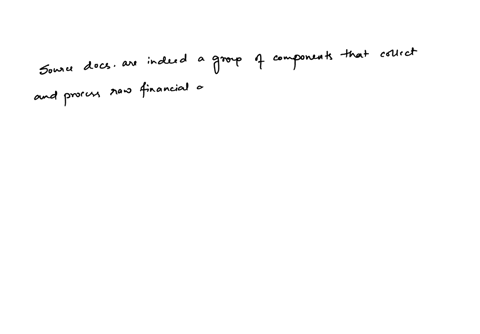 Source docs. are indeed a group of components that collect
and process raw financial